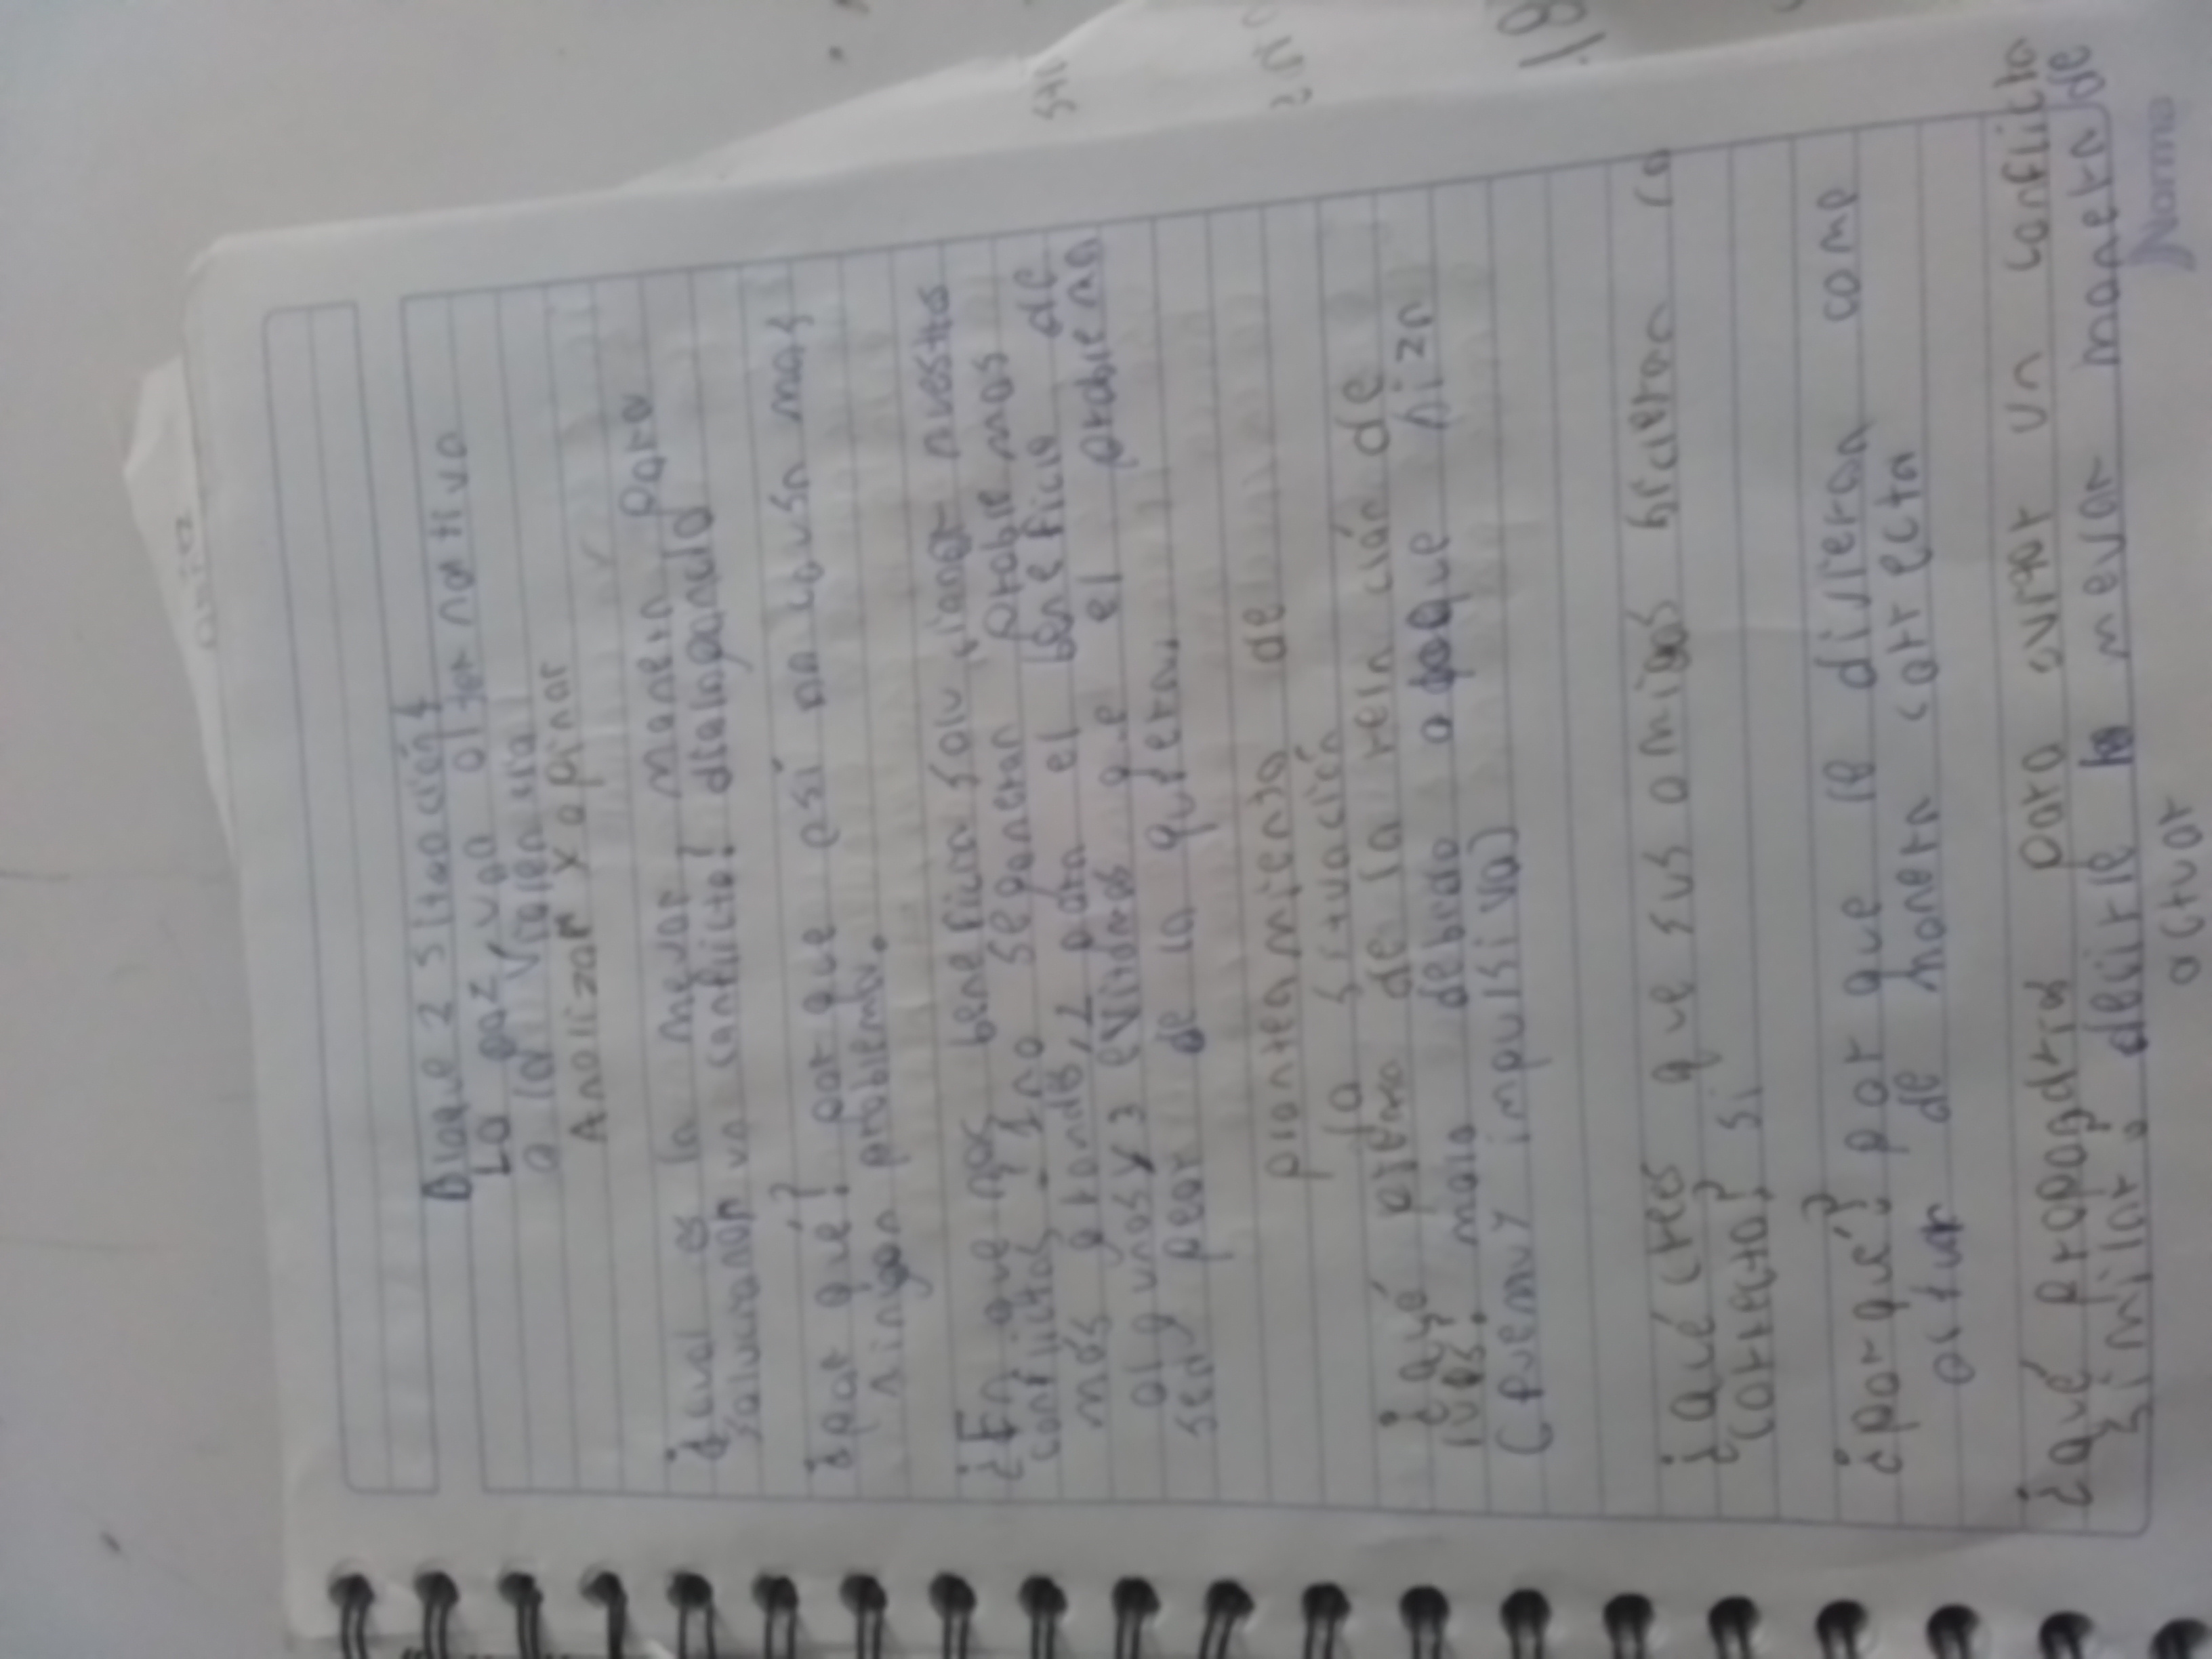 Bloque 2 situación 4
La paz, una alternativa
a la violencia
Analizar y opinar
¿cual es la mejor manera para
solucionar un conflicto? dialogando
¿por qué? por que así no causa mas
ningun problema.
¿En que nos beneficia solucionar nuestros
conflictos? 1 no se generan problemas
más grandes, 2 para el beneficio de
algunos y 3 evitamos que el problema
sea peor de lo que era.
planteamiento de
la situación
¿qué piensa de la relación de
luis? malo debido a que hizo
(fue muy impulsiva)
¿qué crees que sus amigos hicieron co
correcto? si
¿porqué? por que le dijeron come
actuar de manera correcta
¿qué propondrias para evitar un conflicto
similar, decirle la mejor manera de
actuar
Norma